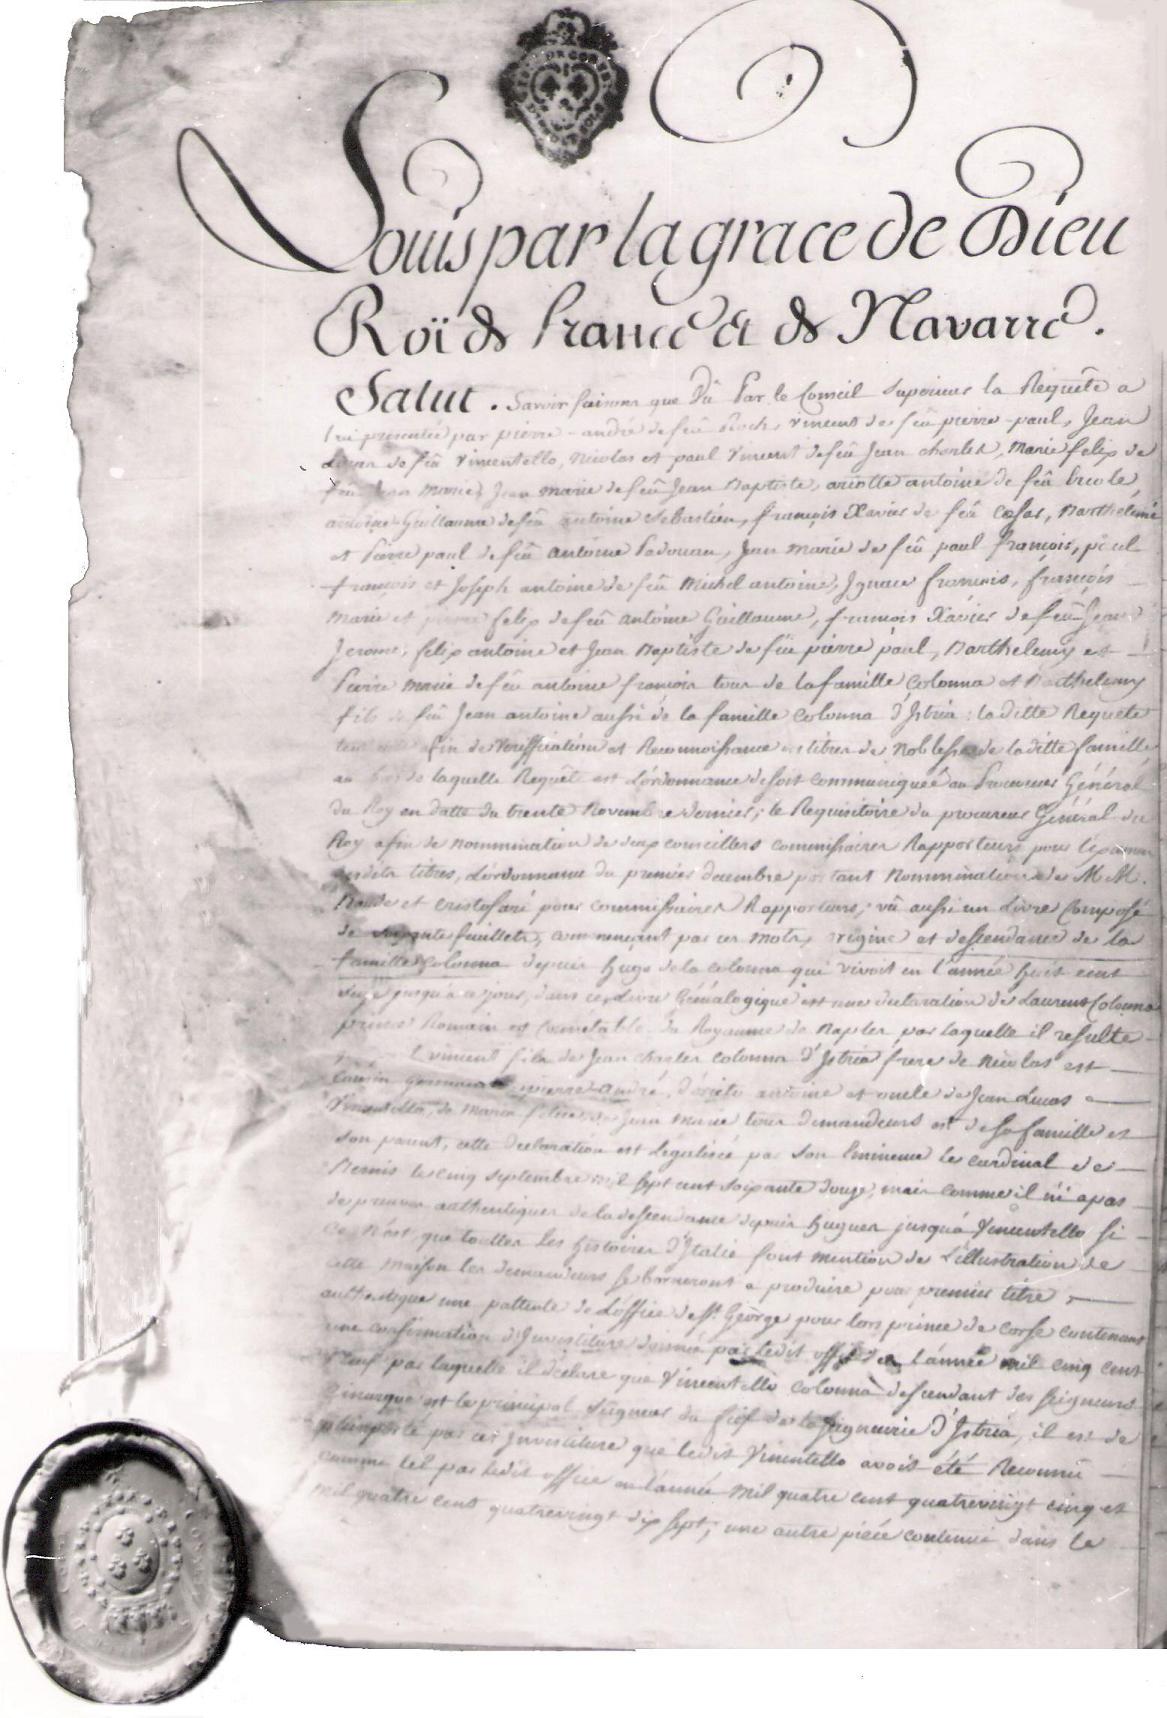 Louis par la grace de Dieu
Roï de France & de Navarre.
Salut. Savoir faisons que Vû Par le Conseil Superieur la Requête a
lui presentée par pierre-andré de feû Roch, vincent de feû pierre-paul, Jean
de feû Vincentello, Nicolas et paul Vincent de feû Jean charles, Marie felix de
feû Jean Marie, Jean marie de feû Jean Baptiste, antoine de feû
antoine Guillaume de feû antoine Sebastien, françois Xavier de feû Cesar, Barthelemi
et Pierre paul de feû antoine Padouan, Jean marie de feû paul françois, paul
françois et Joseph antoine de feû Michel antoine, Ignace françois, françois
marie et felix de feû antoine Guillaume, françois Xavier de feû Jean
Jerome, felix antoine et Jean Baptiste de feû pierre paul, Barthelemy et
Pierre marie de feû antoine francois tous de la famille Colonna et Barthelemy
fils de feû Jean antoine aussi de la famille Colonna d'Istria; la ditte Requête
afin de Veriffication et Reconnoissance des titres de Noblesse de la ditte famille
au bas de laquelle Requête est L'ordonnance de soit communiquée au Procureur Général
du Roy en datte du trente Novembre dernier; le Requisitoire du procureur Général du
Roy afin de nommination de deux conseillers commissaires Rapporteurs pour l'examen
desdits titres, L'ordonnance du premier decembre portant Nommination de M M.
et Cristofari pour commissaires Rapporteurs; vû aussi un Livre Composé
de feuillets, commençant par ces mots, origine et descendance de la
famille Colonna depuis Hugo de la colonna qui vivoit en l'année huit cent
seize jusqu'à ce jour, dans ce Livre Généalogique est une declaration de Laurent Colonna
prince Romain et Connetable du Royaume de Naples par laquelle il resulte
vincent fils de Jean charles colonna d'Istria frere de Nicolas est
Cousin germain pierre andré, antoine et oncle de Jean Lucas
Vincentello, de Marie felix, de Jean Marie tous demandeurs est de sa famille et
son parent, cette declaration est Legalisée par son Eminence le cardinal de
Bernis le cinq septembre mil sept cent soixante douze, mais comme il n'i a pas
de preuves authentiques de la descendance depuis Hugues jusqu'à Vincentello si
ce N'est que touttes les histoires d'Italie font mention de L'illustration de
cette maison les demandeurs se borneront a produire pour premier titre
authentique une pattente de L'office de St. George pour lors prince de corse contenant
une confirmation d'Investiture donnée par ledit office en l'année mil cinq cent
Neuf par laquelle il declare que Vincentello colonna descendant des seigneurs
Cinarque est le principal Seigneur du fief de la Seigneurie d'Istria, il est de
plus par cet Investiture que ledit Vincentello avoit été Reconnu
comme tel par ledit office en l'année mil quatre cent quatrevingt cinq et
mil quatre cent quatrevingt dix sept; une autre piéce contenue dans le